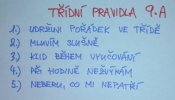 TŘÍDNÍ PRAVIDLA 9.A
1.) UDRŽUJI POŘÁDEK VE TŘÍDĚ
2.) MLUVÍM SLUŠNĚ
3.) KLID BĚHEM VYUČOVÁNÍ
4.) PŘI HODINĚ NEŽVÝKÁM
5.) NEBERU, CO MI NEPATŘÍ